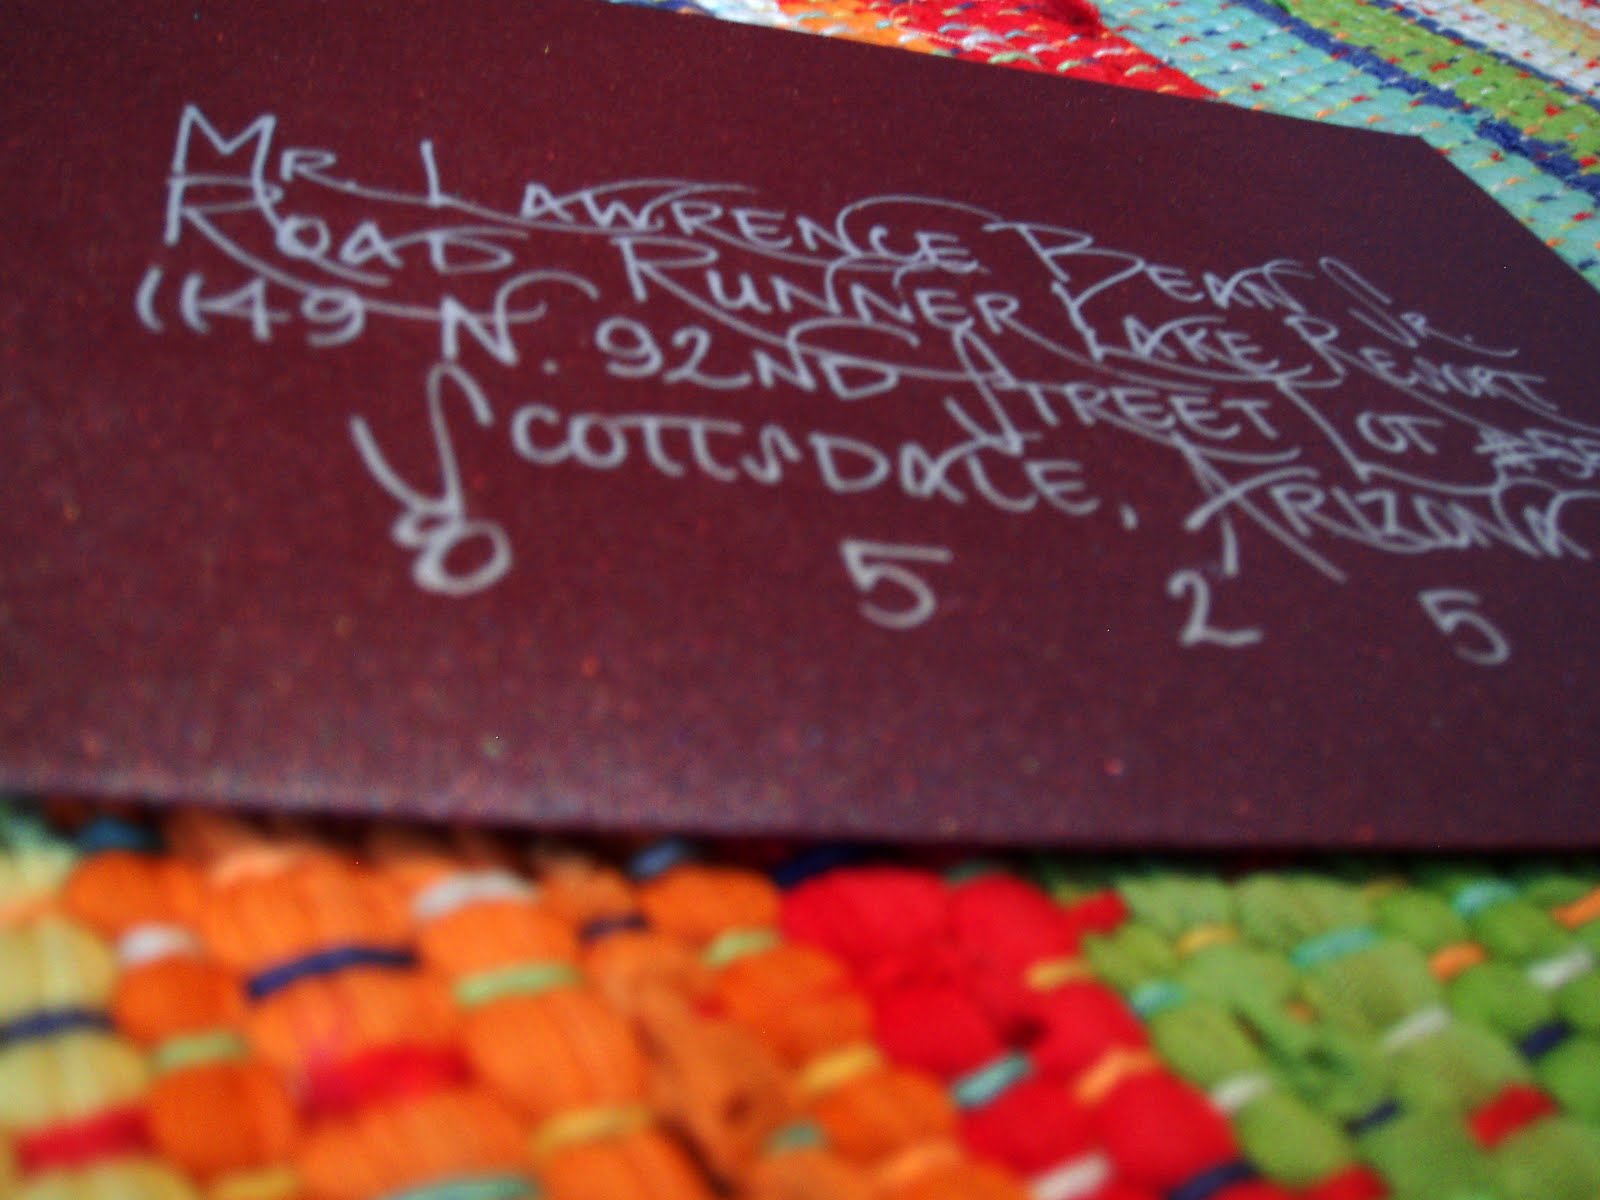 Mr. Lawrence Bean Jr.
Road Runner Lake Resort
1149 N. 92nd Street Lot #55
Scottsdale, Arizona
8 5 2 5